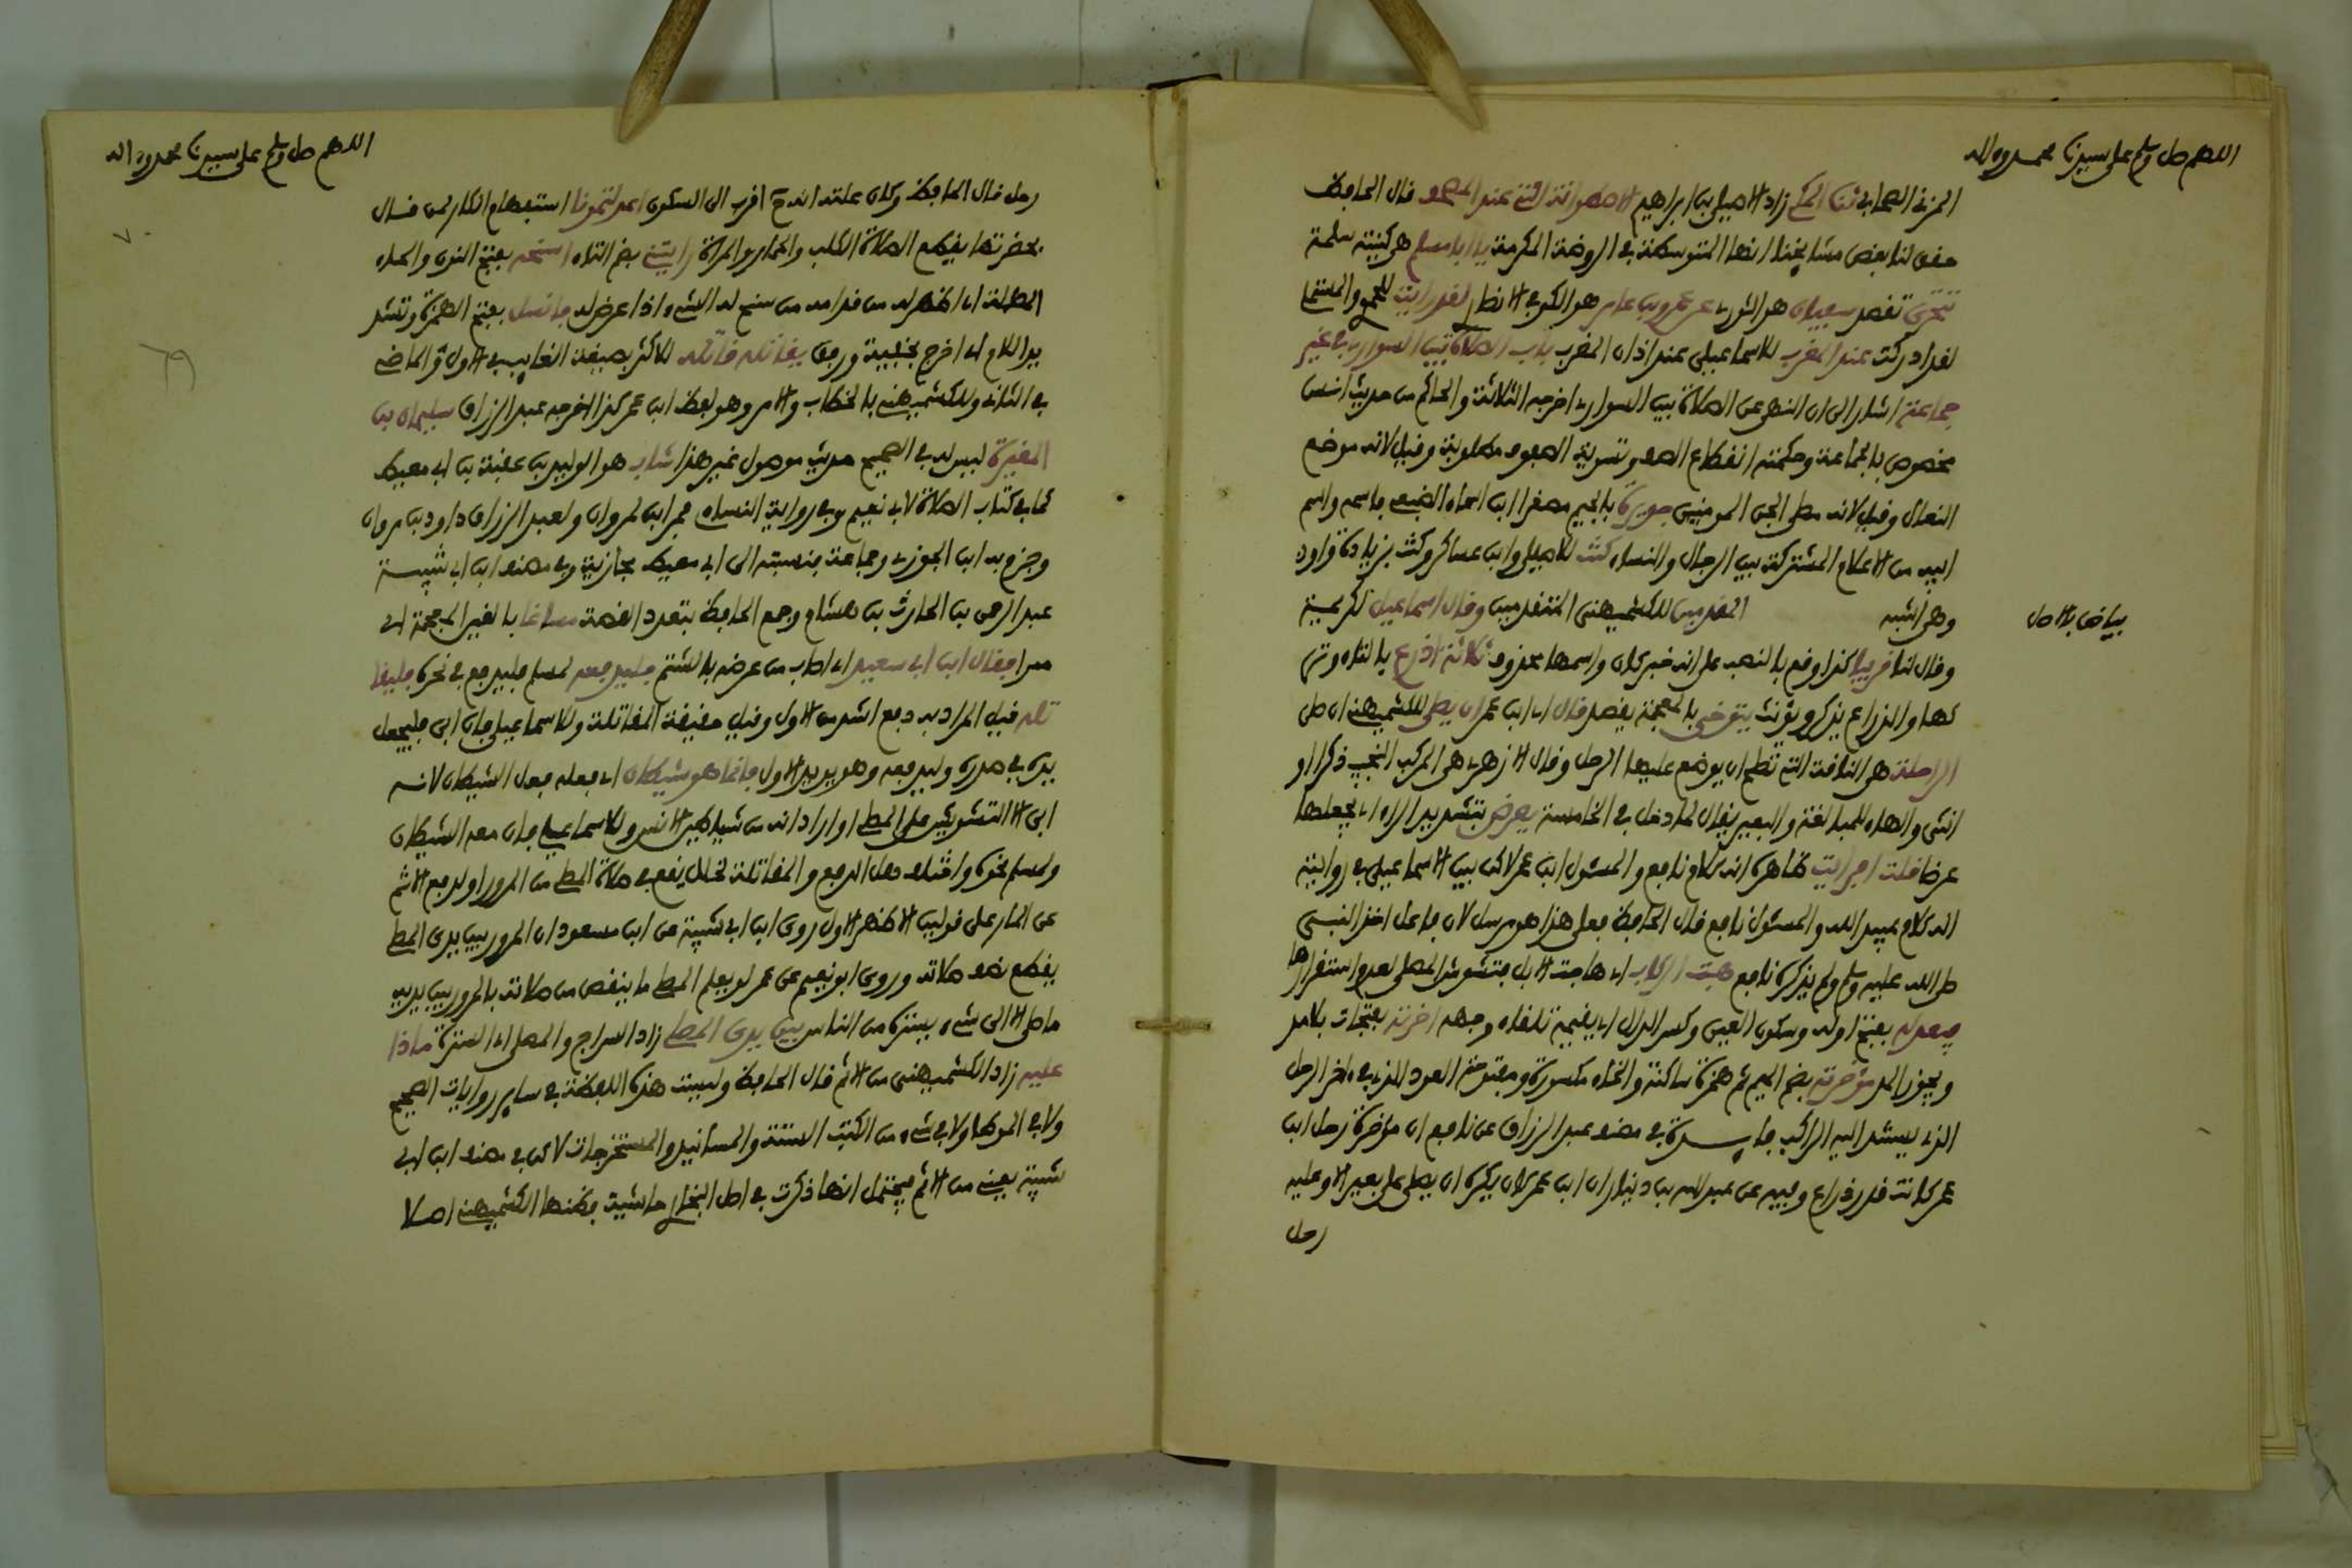 اللهم صل وسلم على سيدنا محمد وءاله
المزني الصحابي ثنا المكي زاد الاصيلي بن ابراهيم الاسطوانة التي عند المصحف قال الحافظ
حقق لنا بعض مشايخنا انها المتوسطة في الروضة المكرمة يا ابا مسلم هي كنية سلمة
تتحرى تقصد سفيان هو الثوري عن عمرو بن عامر هو الكوفي الانصاري لقد رايت للحموي والمستملي
لقد ادركت عند المغرب للاسماعيلي عند اذان المغرب باب الصلاة بين السواري في غير
جماعة اشار الى ان النهي عن الصلاة بين السواري اخرجه الثلاثة والحاكم من حديث انس
مخصوص بالجماعة وحكمته انقطاع الصف وتسوية الصفوف مطلوبة وقيل لانه موضع
النعال وقيل لانه مصلى الجن المومنين جويرية بالجيم مصغرا ابن اسماء الضبعي واسمه واسم
ابيه من الاعلام المشتركة بين الرجال والنساء كنت للاصيلي وابن عساكر وكنت بزيادة واو
وهي اشبه المقدمين للكشميهني المتقدمين وقال اسماعيل لكريمة
بياض بالاصل
وقال لنا قريبا كذا وقع بالنصب على انه خبر كان واسمها محذوف ثلاثة اذرع بالتاء
والذراع يذكر ويؤنث يتوخى بالمعجمة يقصد قال اي ابن عمر ان يصلي للكشميهني ان صلى
الراحلة هي الناقة التي تصلح ان يوضع عليها الرحل وقال الازهري هي المركب النجيب ذكرا او
انثى والهاء للمبالغة والبعير يقال لما دخل في الخامسة يعرض بتشديد الراء اي يجعلها
عرضا قلت افرايت ظاهره انه كلام نافع والمسئول ابن عمر لاكن بين الاسماعيلي في روايته
انه كلام عبيد الله والمسئول نافع قال الحافظ فعلى هذا هو مرسل لان فاعل اخذ النبي
صلى الله عليه وسلم ولم يذكره نافع هبت الركاب اي هاجت الابل فتشوش المصلي لعدم استقرارها
فيعدله بفتح اوله وسكون العين وكسر الدال اي يقيمه تلقاء وجهه اخرته بفتحات بلا مد
ويجوز المد مؤخرته بضم الميم ثم همزة ساكنة والخاء مكسورة ومفتوحة العود الذي في ءاخر الرحل
الذي يستند اليه الراكب في مصنف عبد الرزاق عن نافع ان مؤخرة رحل ابن
عمر كانت قدر ذراع وفيه عن عبد الله بن دينار ان ابن عمر كان يكره ان يصلي على بعير الا وعليه
رحل
اللهم صل وسلم على سيدنا محمد وءاله
رحل قال الحافظ وكان علته انه ح اقرب الى السكون اعدلتمونا استفهام انكار لمن قال
بحضرتها يقطع الصلاة الكلب والحمار والمراة رايتني بضم التاء اسنحه بفتح النون والحاء
المهملة اي اظهر له من قدامه من سنح له الشيء اذا عرض له فانسل بفتح الهمزة وتشد
يد اللام اي اخرج بخفية ورفق يقاتله قاتله للاكثر بصيغة الغايب في الاول والماضي
في الثاني وللكشميهني بالخطاب والامر وهو لفظ ابن عمر كذا اخرجه عبد الرزاق سليمان بن
المغيرة ليس له في الصحيح حديث موصول غير هذا شاب هو الوليد بن عقبة بن ابي معيط
كما في كتاب الصلاة لابي نعيم وفي رواية النساءي فمر ابن لمروان ولعبد الرزاق داود بن مروان
وجزم به ابن الجوزي وجماعة فنسبته الى ابي معيط مجازية وفي مصنف ابن ابي شيبة
عبد الرحمن بن الحارث بن هشام وجمع الحافظ بتعدد القصة مساغا بالغين المعجمة اي
ممرا فقال ابن ابي سعيد اي اصاب من عرضه بالشتم فليدفعه لمسلم فليدفع في نحره فليقا
تله قيل المراد به دفع اشد من الاول وقيل حقيقة المقاتلة وللاسماعيلي فان ابى فليجعل
يده في صدره وليدفعه وهو يؤيد الاول فانما هو شيطان اي فعله فعل الشيطان لانه
ابى الا التشويش على المصلي او اراد انه من شياطين الانس وللاسماعيلي فان معه الشيطان
ولمسلم نحوه واختلف هل الدفع والمقاتلة لخلل يقع في صلاة المصلي من المرور او لدفع الاثم
عن المار على قولين الاظهر الاول روى ابن ابي شيبة عن ابن مسعود ان المرور بين يدي المصلي
يقطع نصف صلاته وروى ابو نعيم عن عمر لو يعلم المصلي ما ينقص من صلاته بالمرور بين يديه
ما صلى الا الى شيء يستره من الناس بين يدي المصلي زاد السراج والمصلى اي السترة ماذا
عليه زاد الكشميهني من الاثم قال الحافظ وليست هذه اللفظة في ساير روايات الصحيح
ولا في الموطا ولا في شيء من الكتب الستة والمسانيد والمستخرجات لاكن في مصنف ابن ابي
شيبة يعني من الاثم فيحتمل انها ذكرت في اصل البخاري حاشية فظنها الكشميهني اصلا